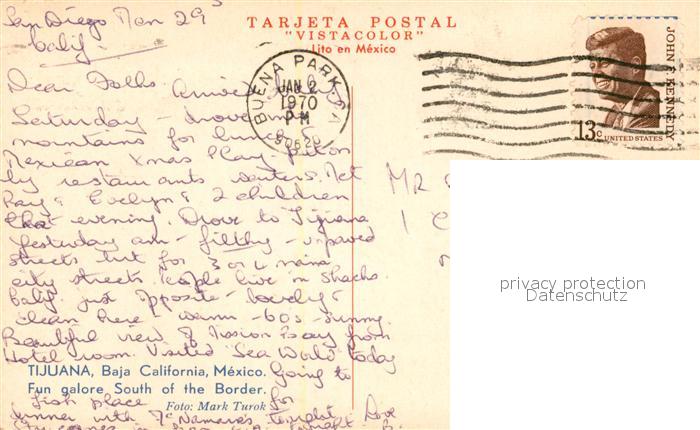 San Diego Mon 29
Calif.
TARJETA POSTAL
"VISTACOLOR"
Lito en México
BUENA PARK
JAN 2
1970
PM
90620
JOHN F. KENNEDY
13c UNITED STATES
Dear Folks
Saturday - drove
mountains for lunch &
Mexican Xmas Play - put on
by restaurants waiters. Met
Ray & Evelyn & 2 children
that evening. Drove to Tijuana
yesterday am - filthy - unpaved
streets but for 3 or 4 main
city streets. People live in shacks.
Calif. just opposite - lovely &
clean here - warm - 60s - sunny.
Beautiful view of Mission Bay from
Hotel room. Visited "Sea World" today
Going to
fish place for
dinner with McNamara's tonight. Love
MR
privacy protection
Datenschutz
TIJUANA, Baja California, México.
Fun galore South of the Border.
Foto: Mark Turok